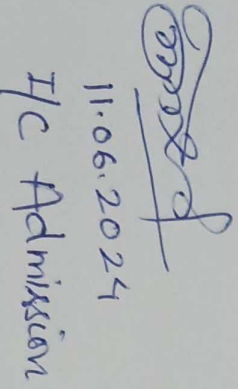 11.06.2024
I/C Admission